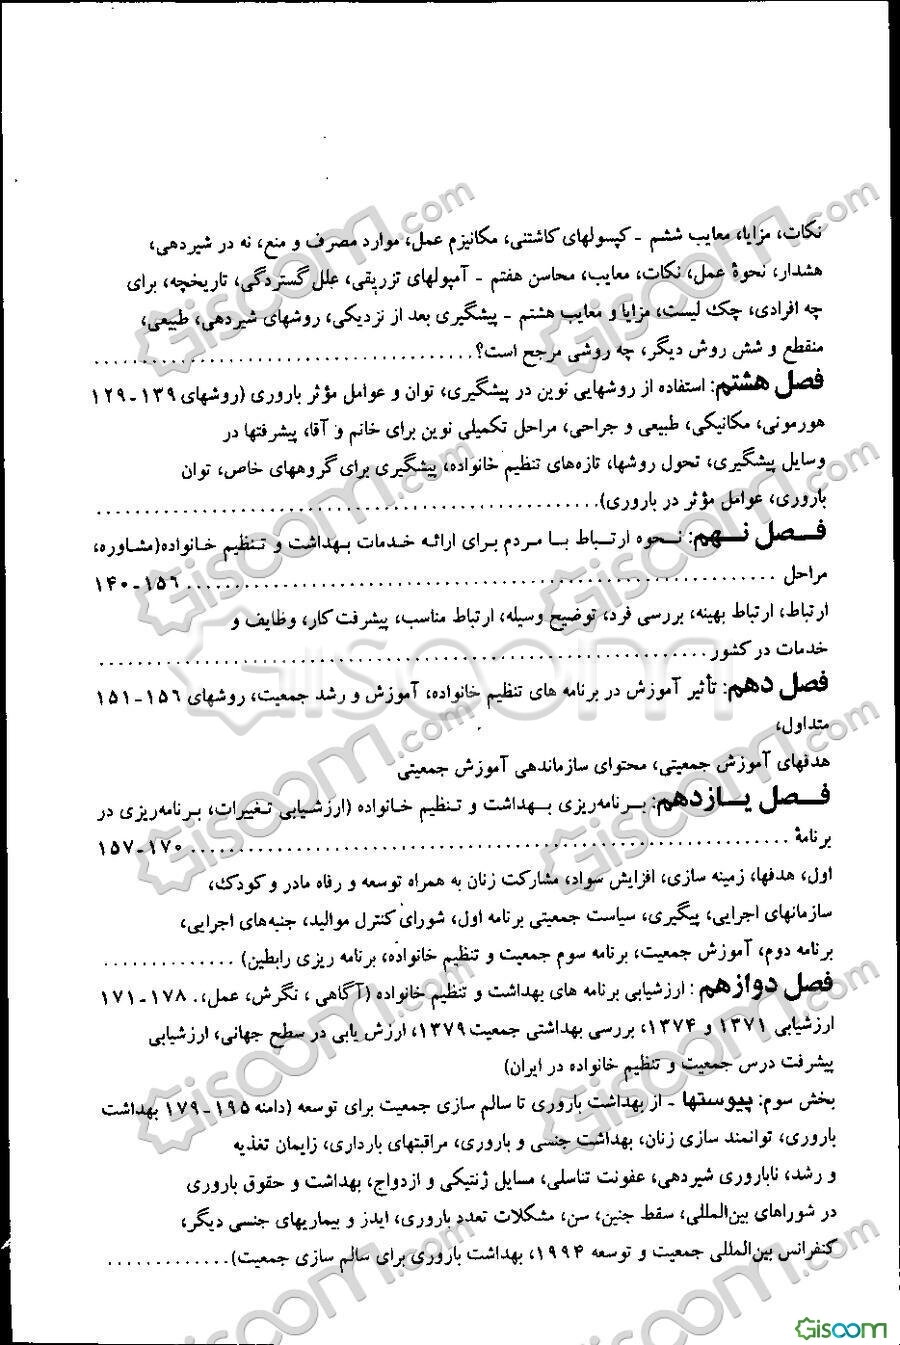 نکات، مزایا، معایب ششم - کپسولهای کاشتنی، مکانیزم عمل، موارد مصرف و منع، نه در شیردهی،
هشدار، نحوهٔ عمل، نکات، معایب، محاسن هفتم - آمپولهای تزریقی، علل گستردگی، تاریخچه، برای
چه افرادی، چک لیست، مزایا و معایب هشتم - پیشگیری بعد از نزدیکی، روشهای شیردهی، طبیعی،
منقطع و شش روش دیگر، چه روشی مرجح است؟........................................
فصل هشتم: استفاده از روشهایی نوین در پیشگیری، توان و عوامل مؤثر باروری (روشهای ۱۳۹-۱۲۹
هورمونی، مکانیکی، طبیعی و جراحی، مراحل تکمیلی نوین برای خانم و آقا، پیشرفتها در
وسایل پیشگیری، تحول روشها، تازه‌های تنظیم خانواده، پیشگیری برای گروههای خاص، توان
باروری، عوامل مؤثر در باروری).....................................................
فصل نهم: نحوه ارتباط با مردم برای ارائه خدمات بهداشت و تنظیم خانواده(مشاوره،
مراحل ............................................................. ۱۵۶-۱۴۰
ارتباط، ارتباط بهینه، بررسی فرد، توضیح وسیله، ارتباط مناسب، پیشرفت کار، وظایف و
خدمات در کشور................................................................
فصل دهم: تأثیر آموزش در برنامه های تنظیم خانواده، آموزش و رشد جمعیت، روشهای ۱۵۶-۱۵۱
متداول،
هدفهای آموزش جمعیتی، محتوای سازماندهی آموزش جمعیتی
فصل یازدهم: برنامه‌ریزی بهداشت و تنظیم خانواده (ارزشیابی تغییرات، برنامه‌ریزی در
برنامهٔ ............................................................. ۱۷۰-۱۵۷
اول، هدفها، زمینه سازی، افزایش سواد، مشارکت زنان به همراه توسعه و رفاه مادر و کودک،
سازمانهای اجرایی، پیگیری، سیاست جمعیتی برنامه اول، شورای کنترل موالید، جنبه‌های اجرایی،
برنامه دوم، آموزش جمعیت، برنامه سوم جمعیت و تنظیم خانواده، برنامه ریزی رابطین) ..............
فصل دوازهم : ارزشیابی برنامه های بهداشت و تنظیم خانواده (آگاهی ، نگرش، عمل،. ۱۷۸-۱۷۱
ارزشیابی ۱۳۷۱ و ۱۳۷۴، بررسی بهداشتی جمعیت ۱۳۷۹، ارزش یابی در سطح جهانی، ارزشیابی
پیشرفت درس جمعیت و تنظیم خانواده در ایران)
بخش سوم: پیوستها - از بهداشت باروری تا سالم سازی جمعیت برای توسعه (دامنه ۱۹۵-۱۷۹ بهداشت
باروری، توانمند سازی زنان، بهداشت جنسی و باروری، مراقبتهای بارداری، زایمان تغذیه
و رشد، ناباروری شیردهی، عفونت تناسلی، مسایل ژنتیکی و ازدواج، بهداشت و حقوق باروری
در شوراهای بین‌المللی، سقط جنین، سن، مشکلات تعدد باروری، ایدز و بیماریهای جنسی دیگر،
کنفرانس بین‌المللی جمعیت و توسعه ۱۹۹۴، بهداشت باروری برای سالم سازی جمعیت).............
Gisoom